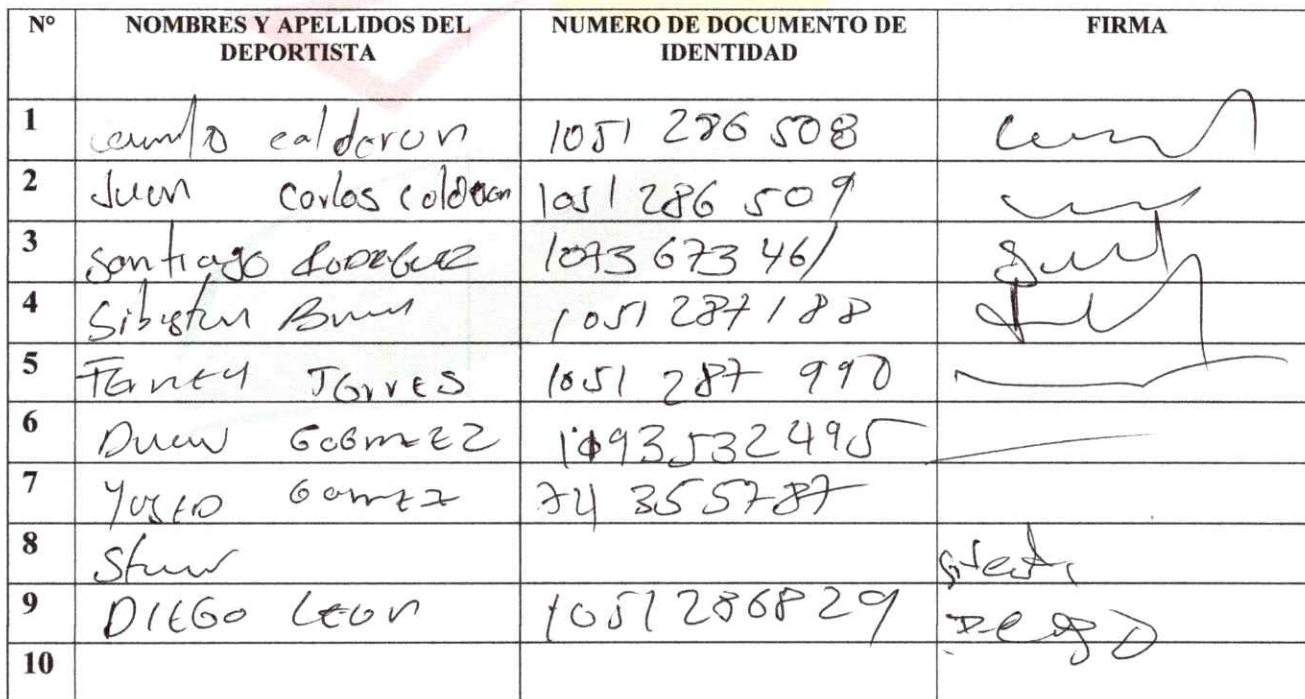 N° NOMBRES Y APELLIDOS DEL DEPORTISTA NUMERO DE DOCUMENTO DE IDENTIDAD FIRMA
1 calderon 1051 286 508
2 Juan Carlos Calderon 1051 286 509
3 Santiago RODRIGUEZ 1073 673 461
4 1051 287 188
5 Torres 1051 287 990
6 1093532495
7 Gomez 74 355787
8
9 DIEGO LEON 1051286829 Diego
10